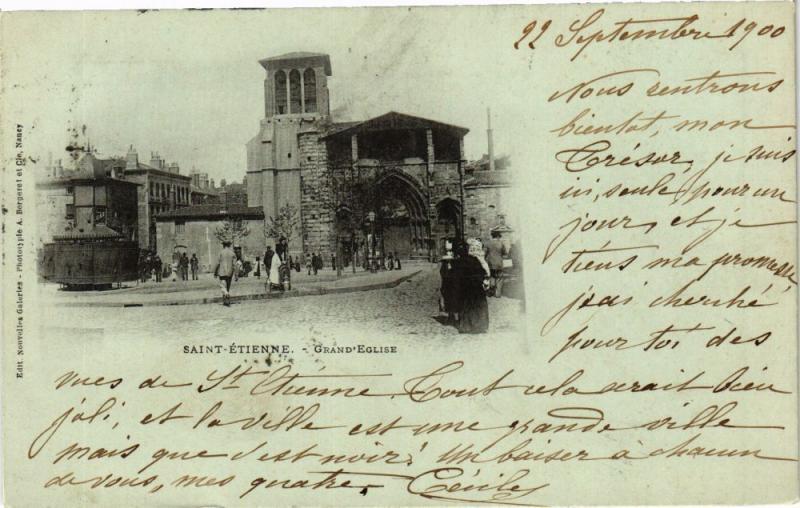 22 Septembre 1900
Nous rentrons
bientot, mon
Trésor, je suis
ici, seule pour un
jour, et je
tiens ma promesse,
j'ai cherché
pour toi des
vues de St Etienne. Tout cela serait bien
joli, et la ville est une grande ville
mais que c'est noir! Un baiser à chacun
de vous, mes quatre. Cécile
SAINT-ÉTIENNE. - GRAND'EGLISE
Edit. Nouvelles Galeries - Phototypie A. Bergeret et Cie, Nancy